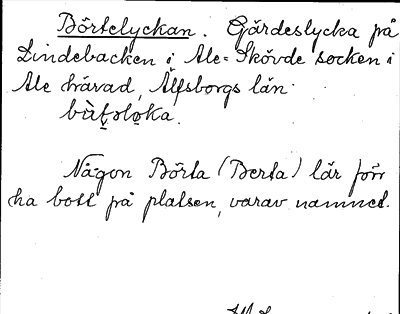 Börtelyckan. Gärdeslycka på
Lindebacken i Ale-Skövde socken i
Ale härad, Älfsborgs län.
Någon Börta (Berta) lär förr
ha bott på platsen, varav namnet.